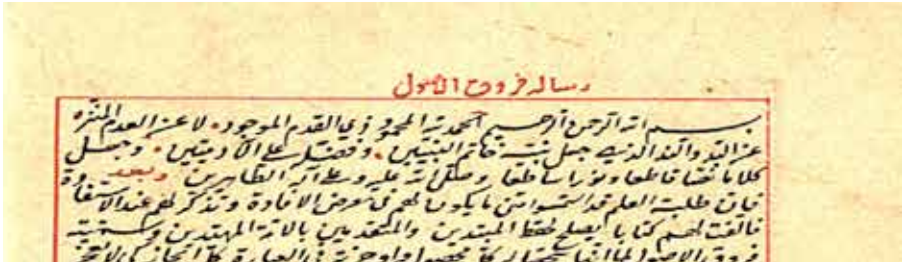 رساله فروق الاصول
بسم الله الرحمن الرحيم الحمد لله المحمود ذي القدم الموجود لا عن العدم المنزه
عن الند والذي جعل نبيه خاتم النبيين وفضله على الآدميين وجعل
كلامه نصا قاطعا ونورا ساطعا وصلى الله عليه وعلى آله الطاهرين وبعد
فان طلبة العلم قد التمسوا مني ما يكون لهم في معرض الافادة وتذكر لهم عند الاستفادة
فالفت لهم كتابا يصلح لحفظ المبتدين والمتقدمين بالارة المهتدين وسميته
فروق الاصول لما